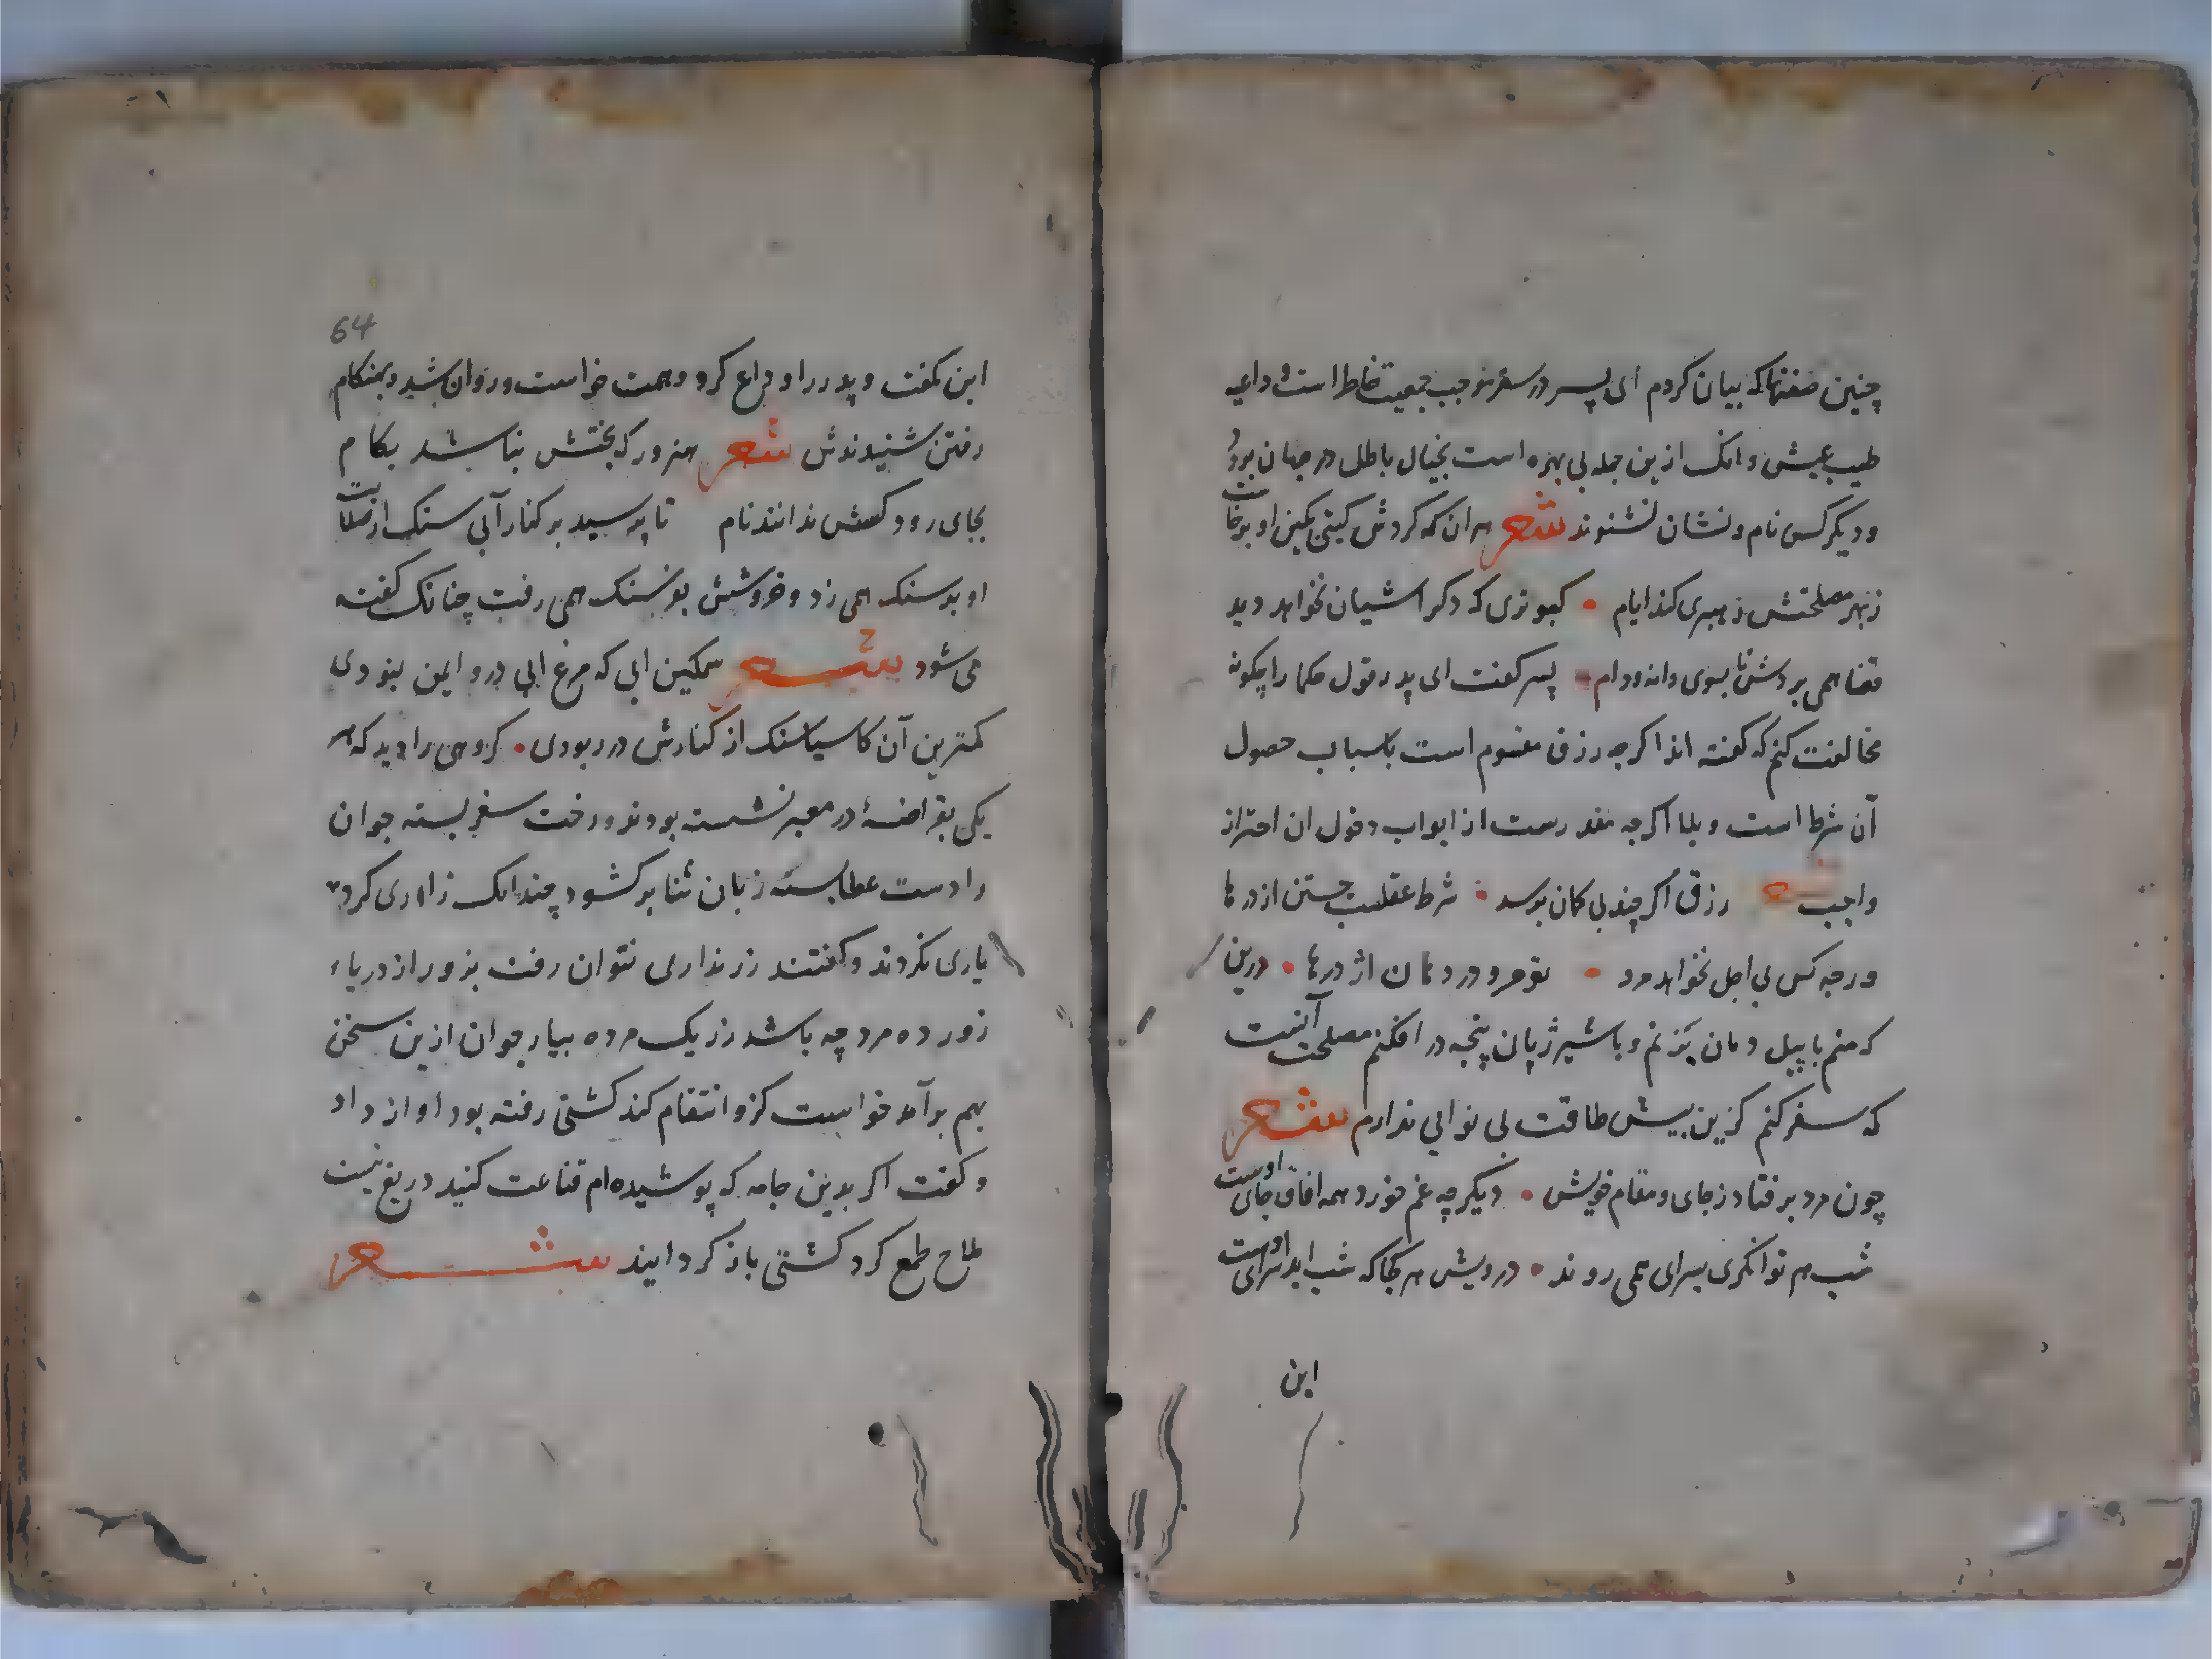 چنین صفتها که بیان کردم ای پسر در سفر موجب جمعیت خاطر است و داعیه
طیب عیش و انک ازین جمله بی بهره است بخیال باطل در جهان برود
و دیکر کسی نام و نشان نشنوند شعر هر ان که کردش کیتی بکین او برخاست
زبهر مصلحتش رهبری کند ایام • کبوتری که دکر اشیان نخواهد دید
قضا همی بردش تا بسوی دانه و دام • پسر کفت ای پدر قول حکما را چکونه
مخالفت کنم که کفته اند اکرچه رزق مقسوم است باسباب حصول
آن شرط است و بلا اکرچه مقدرست از ابواب دخول ان احتراز
واجب شعر رزق اکر چند بی کمان برسد • شرط عقلست جستن از درها
ورچه کس بی اجل نخواهد مرد • تو مرو در دهان اژدرها • درین
که منم با پیل دمان بزنم و با شیر ژیان پنجه در افکنم مصلحت آنست
که سفر کنم کزین بیش طاقت بی نوایی ندارم شعر
چون مرد بر فتاد ز جای و مقام خویش • دیکر چه غم خورد همه افاق جای اوست
شب هر توانکری بسرای همی روند • درویش هر کجا که شب اید سرای اوست
این
64
این بگفت و پدر را وداع کرد و همت خواست و روان شد و بهنکام
رفتن شنیدندش شعر هنرور که بختش نباشد بکام
بجای رود کسش ندانند نام تا برسید بر کنار آبی سنک از صلابت
او بر سنک همی زد و خروشش بفرسنک همی رفت چنانک کفته
می شود شعر سهمکین ابی که مرغ ابی درو ایمن نبودی
کمترین آن کاسیاسنک از کنارش در ربودی • کروهی را دید که هر
یکی بقراضهٔ در معبر نشسته بودند و رخت سفر بسته جوان
را دست عطا بسته زبان ثنا بر کشود چندانک زاری کرد
یاری نکردند و کفتند زر نداری نتوان رفت بزور از دریاء
زور ده مرد چه باشد زر یک مرده بیار جوان ازین سخن
بهم برآمد خواست کزو انتقام کند کشتی رفته بود اواز داد
و کفت اکر بدین جامه که پوشیده ام قناعت کنید دریغ نیست
ملاح طمع کرد کشتی باز کردایند شعر